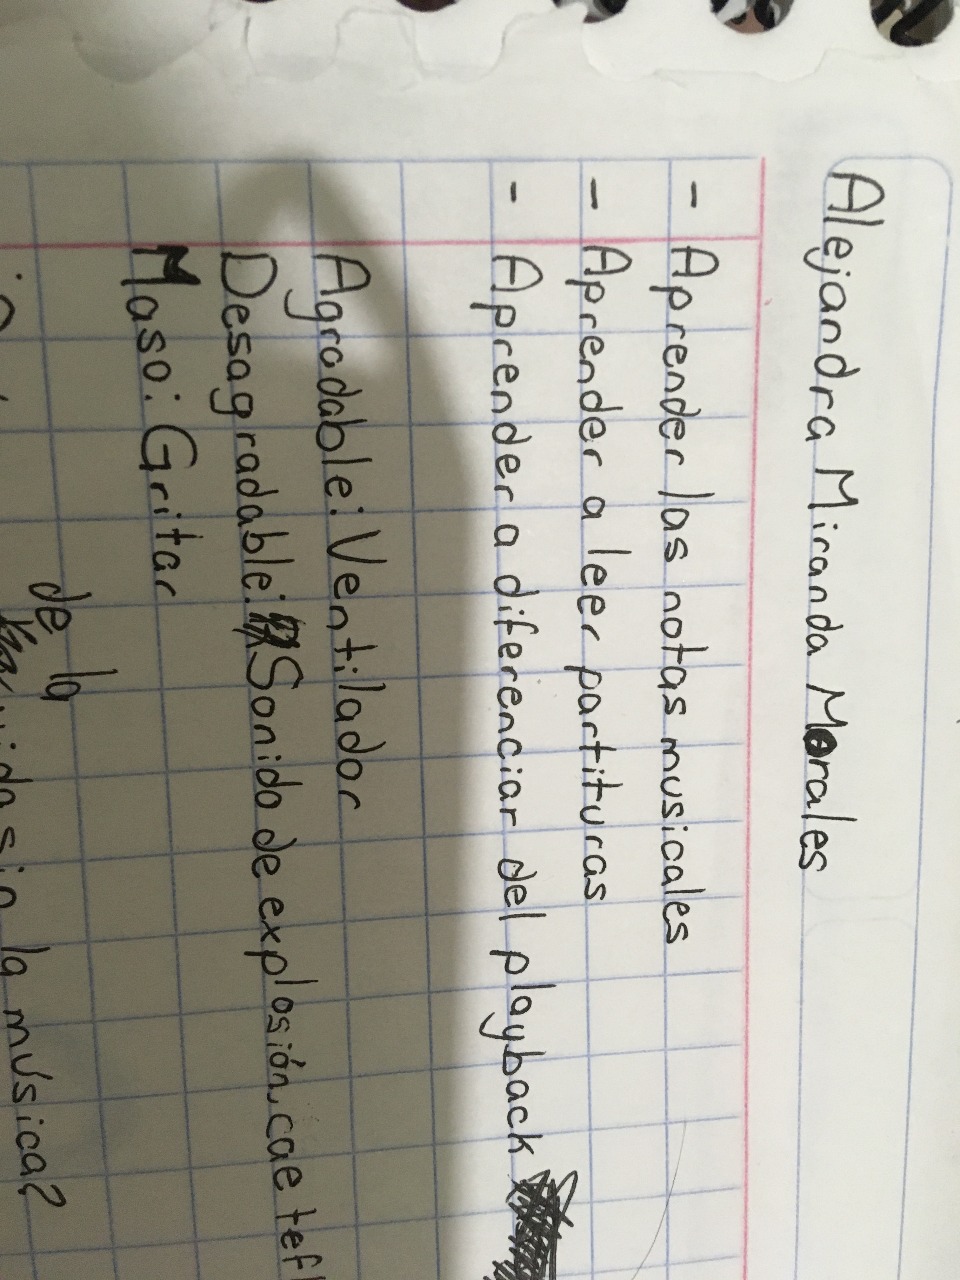 Alejandra Miranda Morales
- Aprender las notas musicales
- Aprender a leer partituras
- Aprender a diferenciar del playback
Agradable: Ventilador
Desagradable: Sonido de explosión, cae
Maso: Gritar
de la
sin la música?